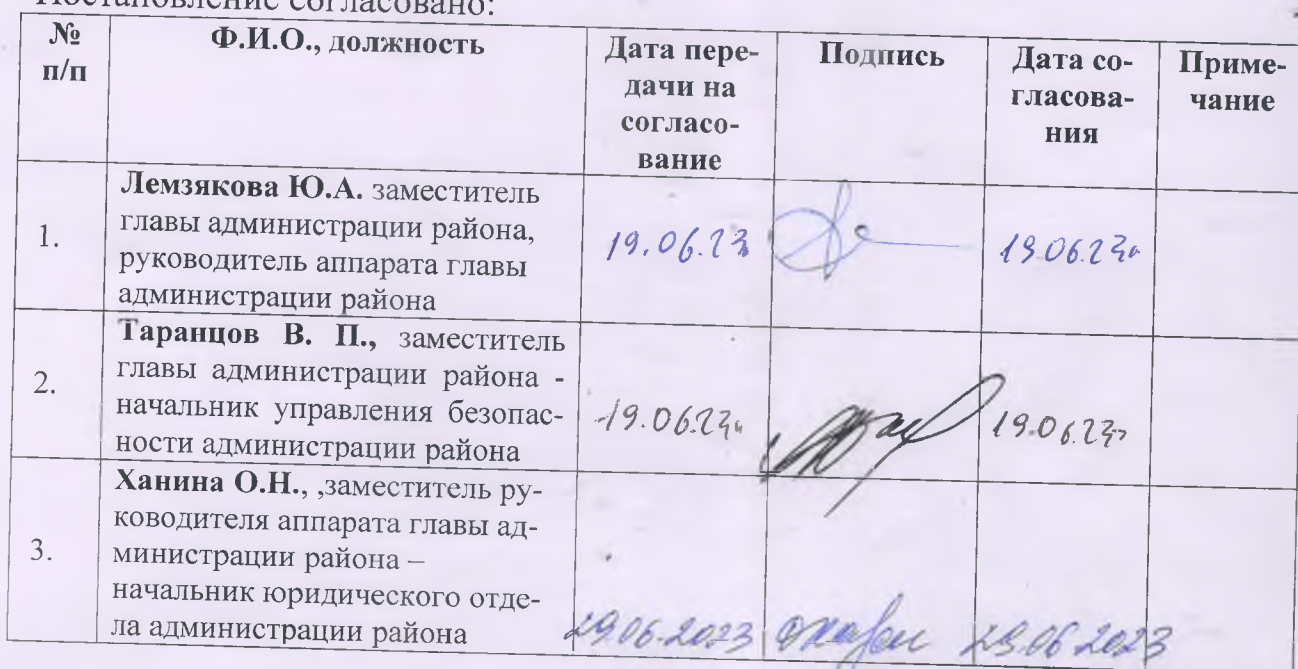 Постановление согласовано:
№ п/п
Ф.И.О., должность
Дата пере-
дачи на
согласо-
вание
Подпись
Дата со-
гласова-
ния
Приме-
чание
1.
Лемзякова Ю.А. заместитель
главы администрации района,
руководитель аппарата главы
администрации района
19.06.23
19.06.23
2.
Таранцов В. П., заместитель
главы администрации района -
начальник управления безопас-
ности администрации района
19.06.23
19.06.23
3.
Ханина О.Н., ,заместитель ру-
ководителя аппарата главы ад-
министрации района –
начальник юридического отде-
ла администрации района
29.06.2023
29.06.2023